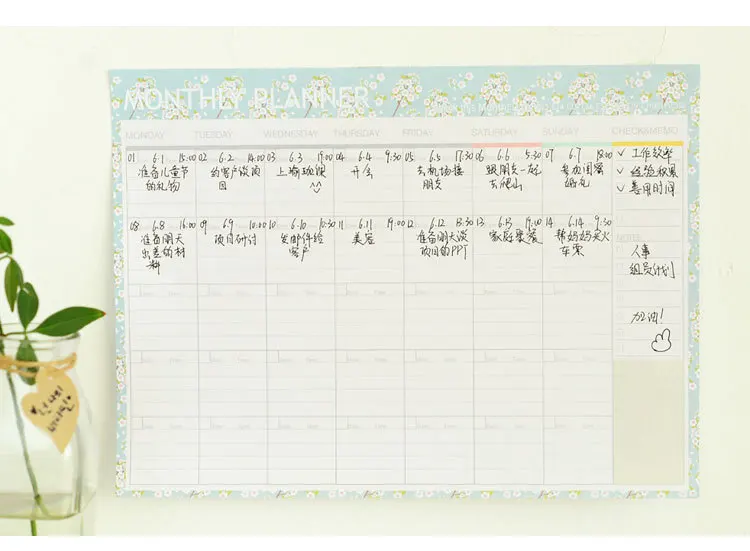 MONTHLY PLANNER
MONDAY TUESDAY WEDNESDAY THURSDAY FRIDAY SATURDAY SUNDAY CHECK&MEMO
01 6.1 15:00 02 6.2 14:00 03 6.3 19:00 04 6.4 9:30 05 6.5 17:30 06 6.6 5:30 07 6.7 18:00
准备儿童节
的礼物
约客户谈项
目
上瑜珈课
开会
去机场接
朋友
跟朋友一起
去爬山
参加闺蜜
婚礼
✓ 工作效率
✓ 经验积累
✓ 善用时间
08 6.8 16:00 09 6.9 10:00 10 6.10 10:30 11 6.11 19:00 12 6.12 13:30 13 6.13 19:10 14 6.14 9:30
准备明天
出差的材
料
项目研讨
发邮件给
客户
美容
准备明天谈
项目的PPT
家庭聚餐
帮妈妈买火
车票
NOTES
人事
组员计划
加油!